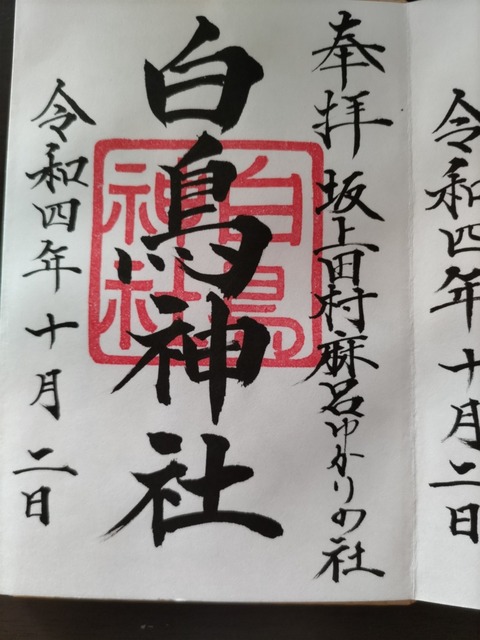 令和四年十月二日
奉拝 坂上田村麻呂ゆかりの社
白鳥神社
白鳥
神社
令和四年十月二日